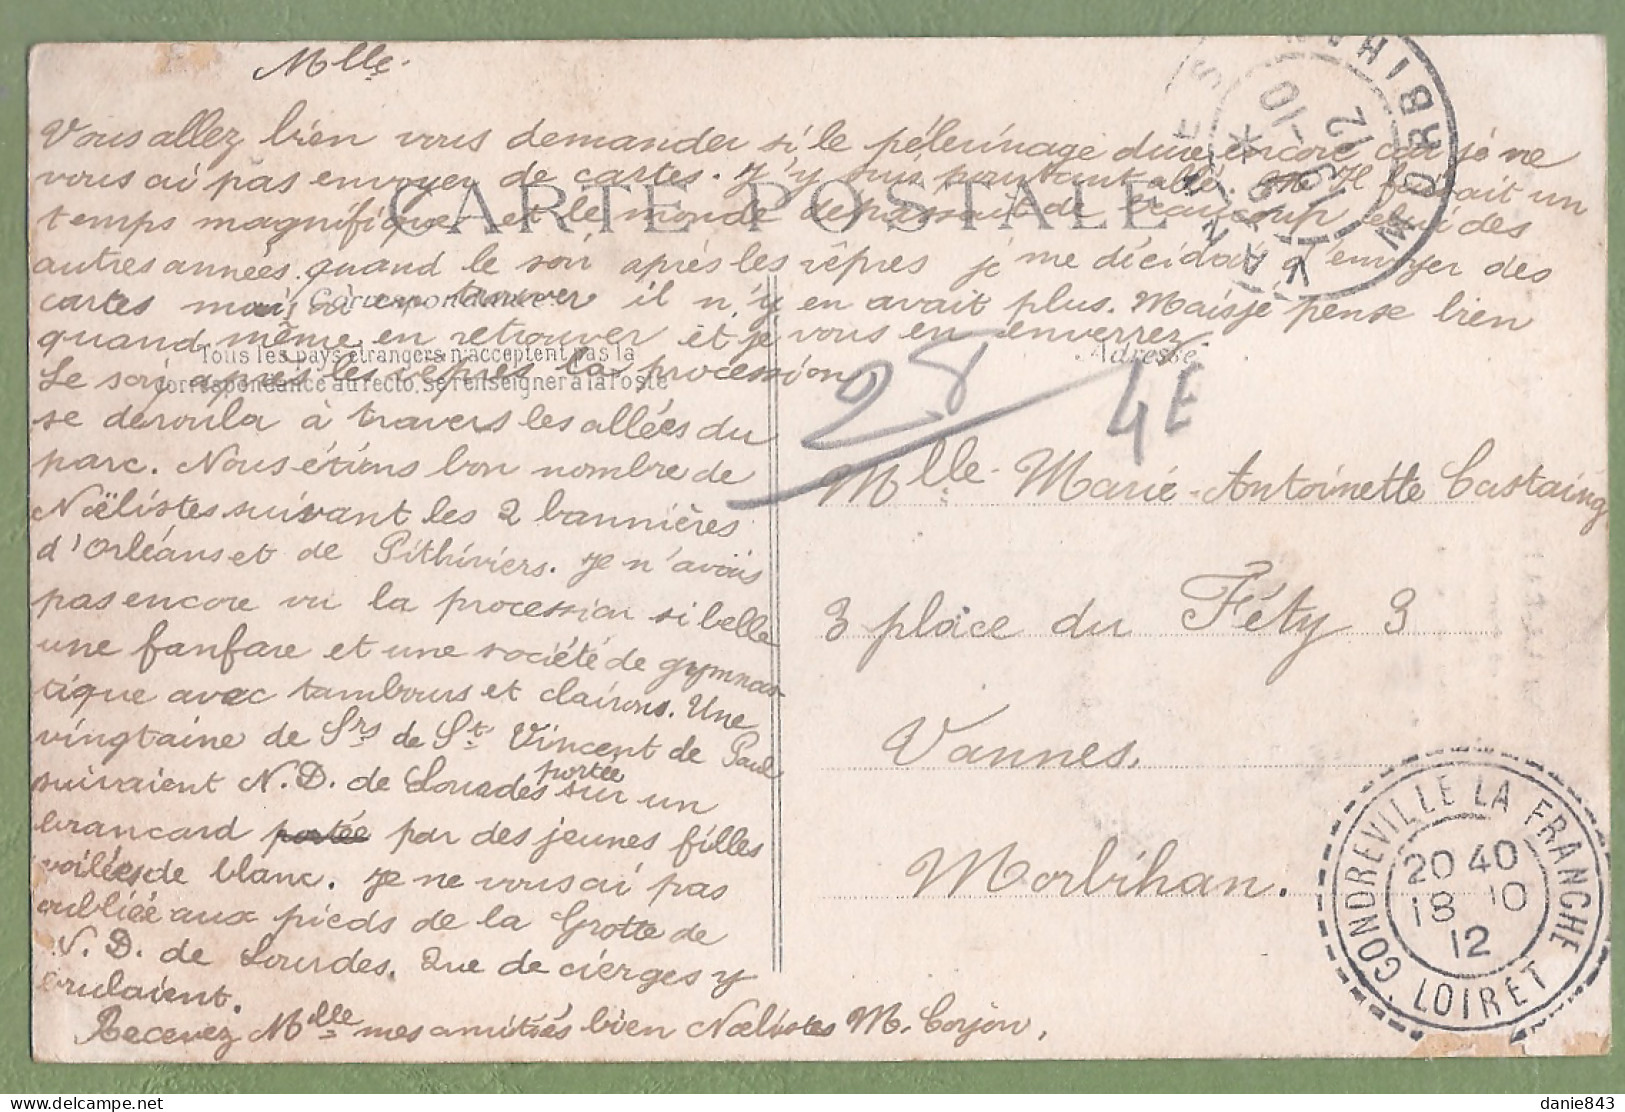 Mlle.
Vous allez bien vous demander si le pélerinage dure encore car je ne
vous ai pas envoyer de cartes. J'y suis pourtant allé. Il faisait un
temps magnifique et le monde dépassait de beaucoup celui des
autres années. quand le soir après les vêpres je me décidai à t'envoyer des
cartes mais en trouver il n'y en avait plus. Mais je pense bien
quand même en retrouver et je vous en enverrez.
Le soir après les vêpres la procession
se déroula à travers les allées du
parc. Nous étions bon nombre de
Noëlistes suivant les 2 bannières
d'Orléans et de Pithiviers. Je n'avais
pas encore vu la procession si belle
une fanfare et une société de gymnas-
tique avec tambours et clairons. Une
vingtaine de Srs de St Vincent de Paul
suivaient N. D. de Lourdes portée sur un
brancard portée par des jeunes filles
voilées de blanc. Je ne vous ai pas
oubliée aux pieds de la Grotte de
N. D. de Lourdes. Que de cierges y
brulaient.
Recevez Mlle mes amitiés bien Noëlistes M. Corjon.
CARTE POSTALE
Correspondance
Tous les pays étrangers n'acceptent pas la
correspondance au recto, se renseigner à la Poste
Adresse
28
4E
Mlle Marie-Antoinette Castaing
3 place du Féty 3
Vannes.
Morbihan.
VANNES MORBIHAN
19-10
12
CONDREVILLE LA FRANCHE
20 40
18 10
12
LOIRET
danie843